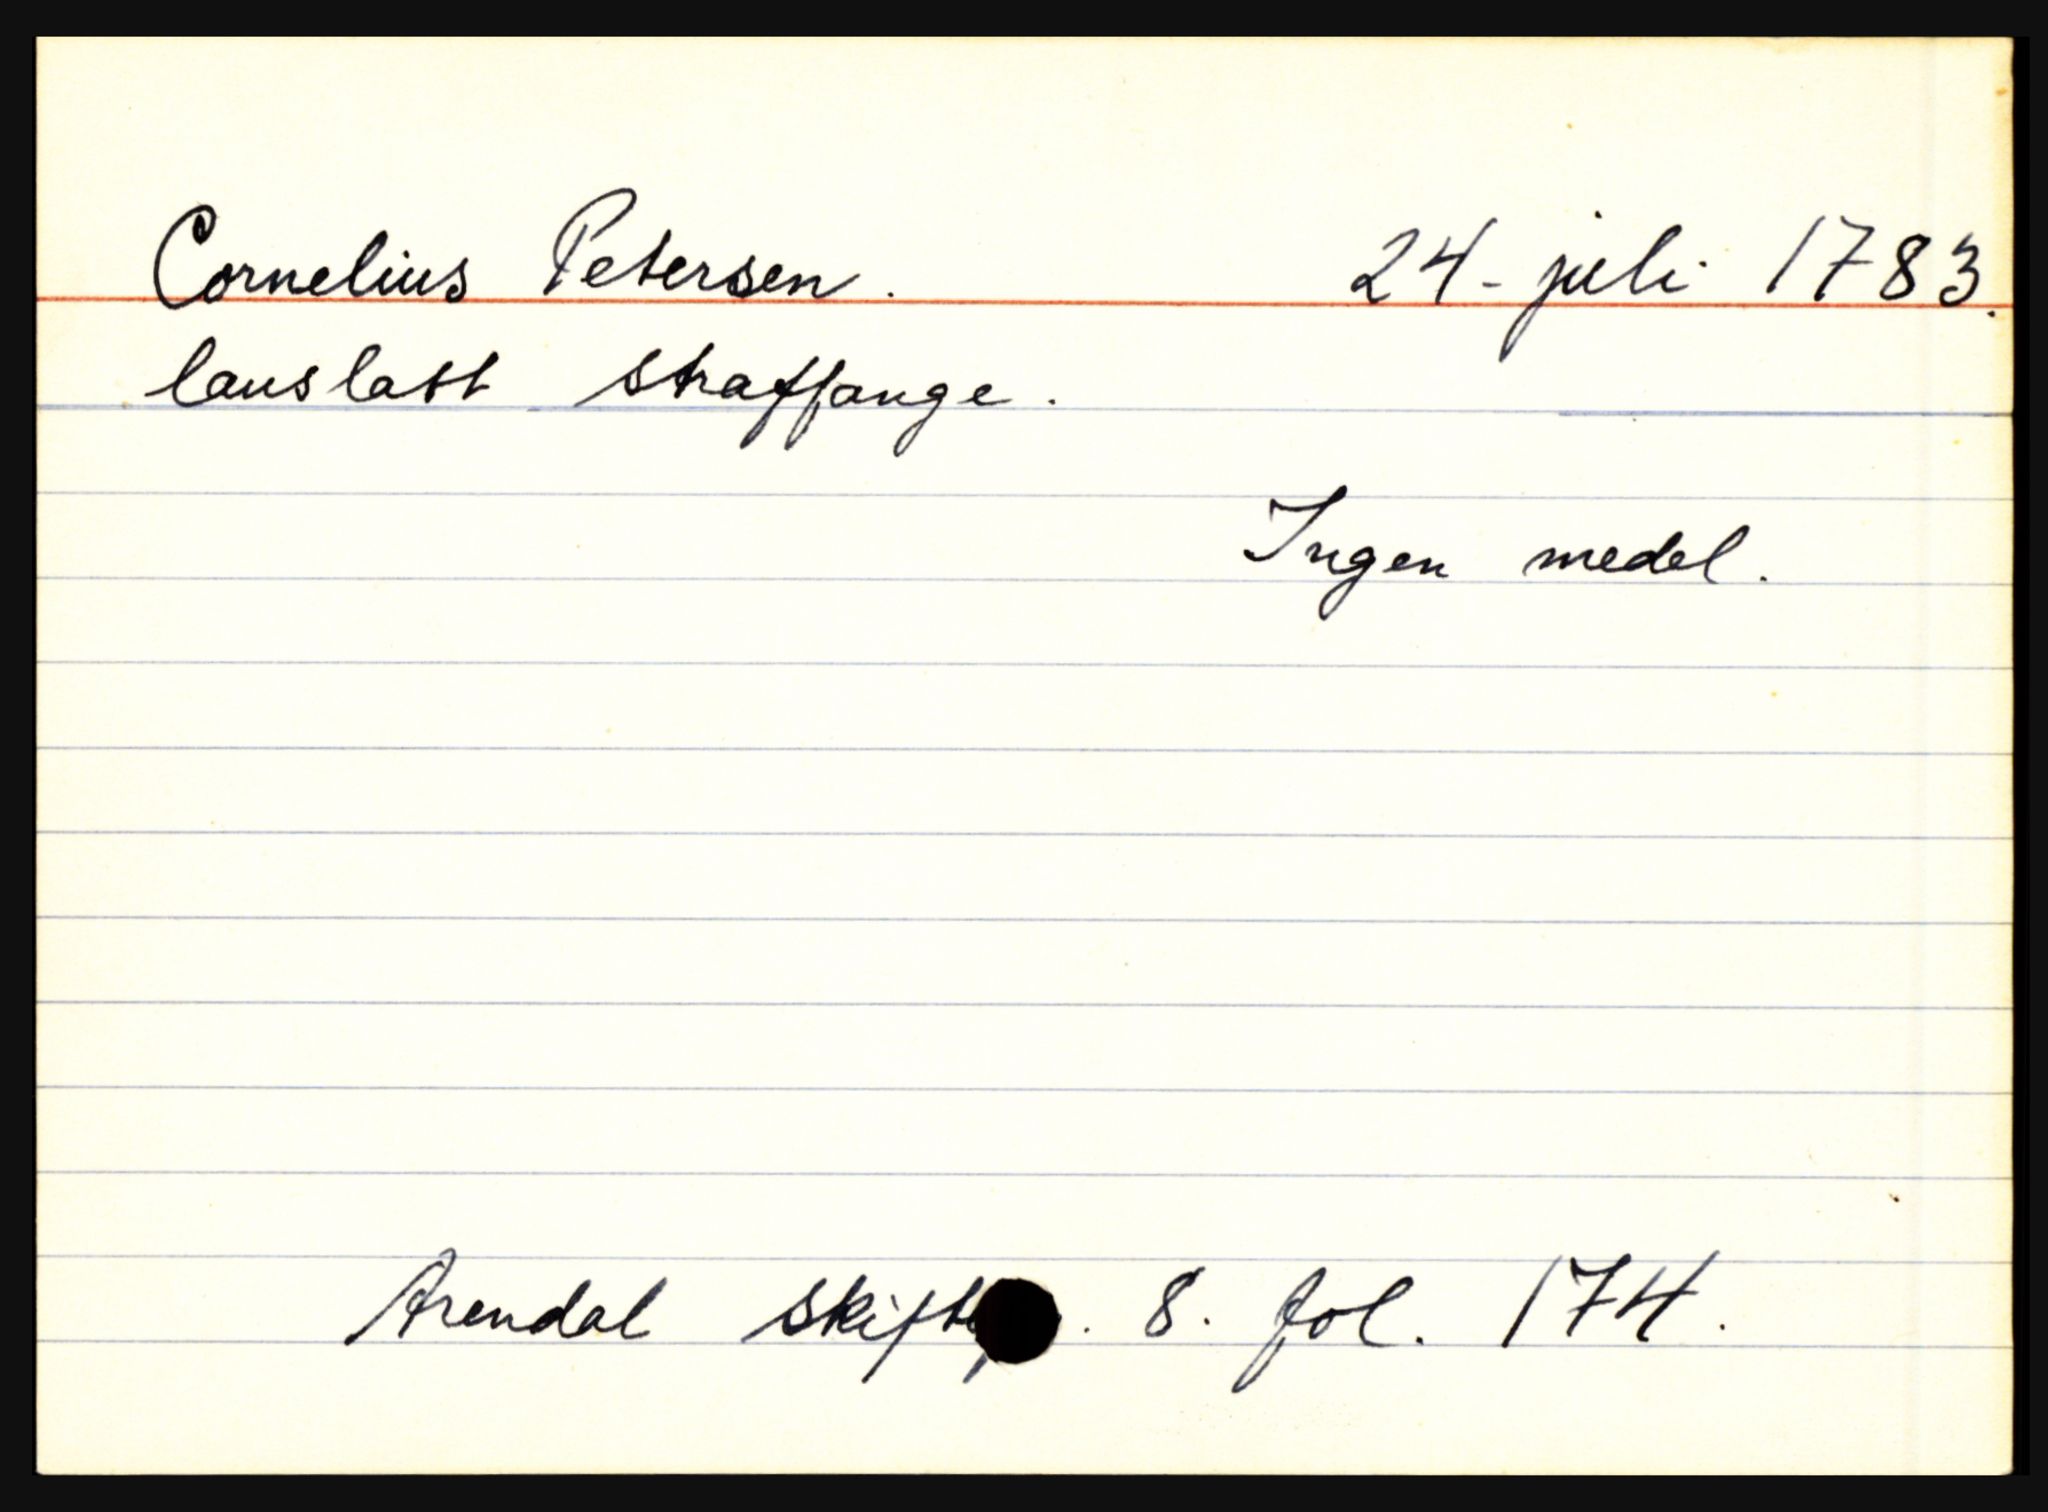 Cornelius Petersen. 24-juli 1783.
lauslatt straffange.
Ingen medel.
Arendal 8. fol. 174.